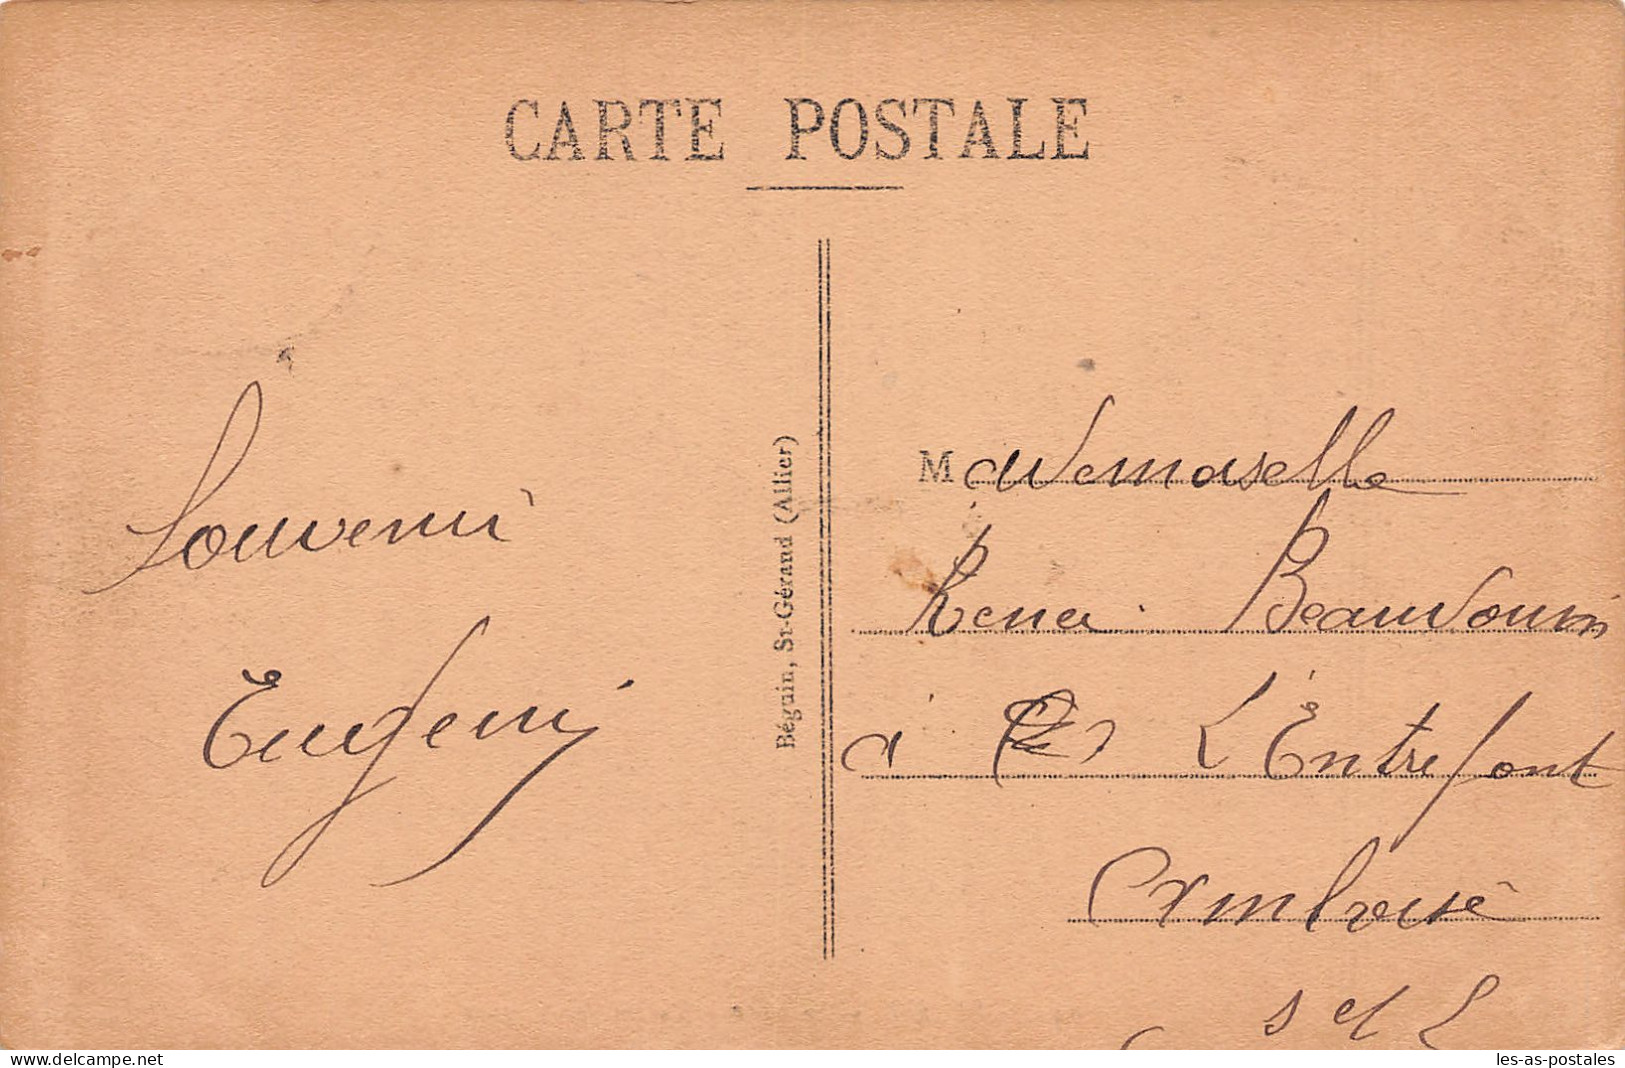 CARTE POSTALE
Souvenir
Eugeni
Béguin, St-Gérand (Allier)
Mademoselle
Rena Beauvouin
à L'Entrefont
Amboise
s et L
www.delcampe.net
les-as-postales